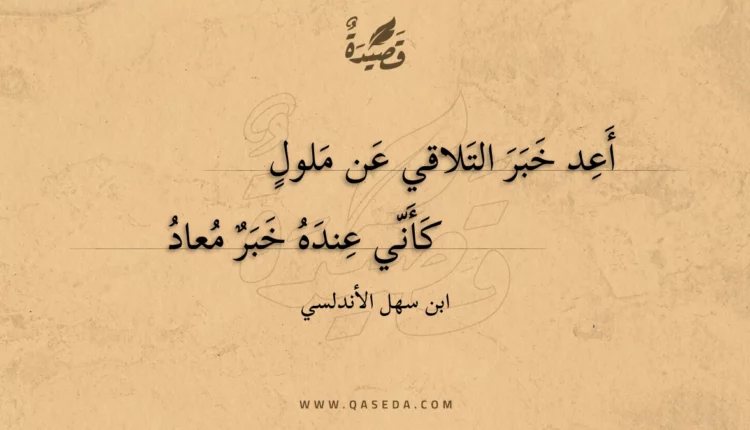 قَصِيْدَةٌ
أَعِد خَبَرَ التَلاقي عَن مَلولٍ
كَأَنّي عِندَهُ خَبَرٌ مُعادُ
ابن سهل الأندلسي
WWW.QASEDA.COM